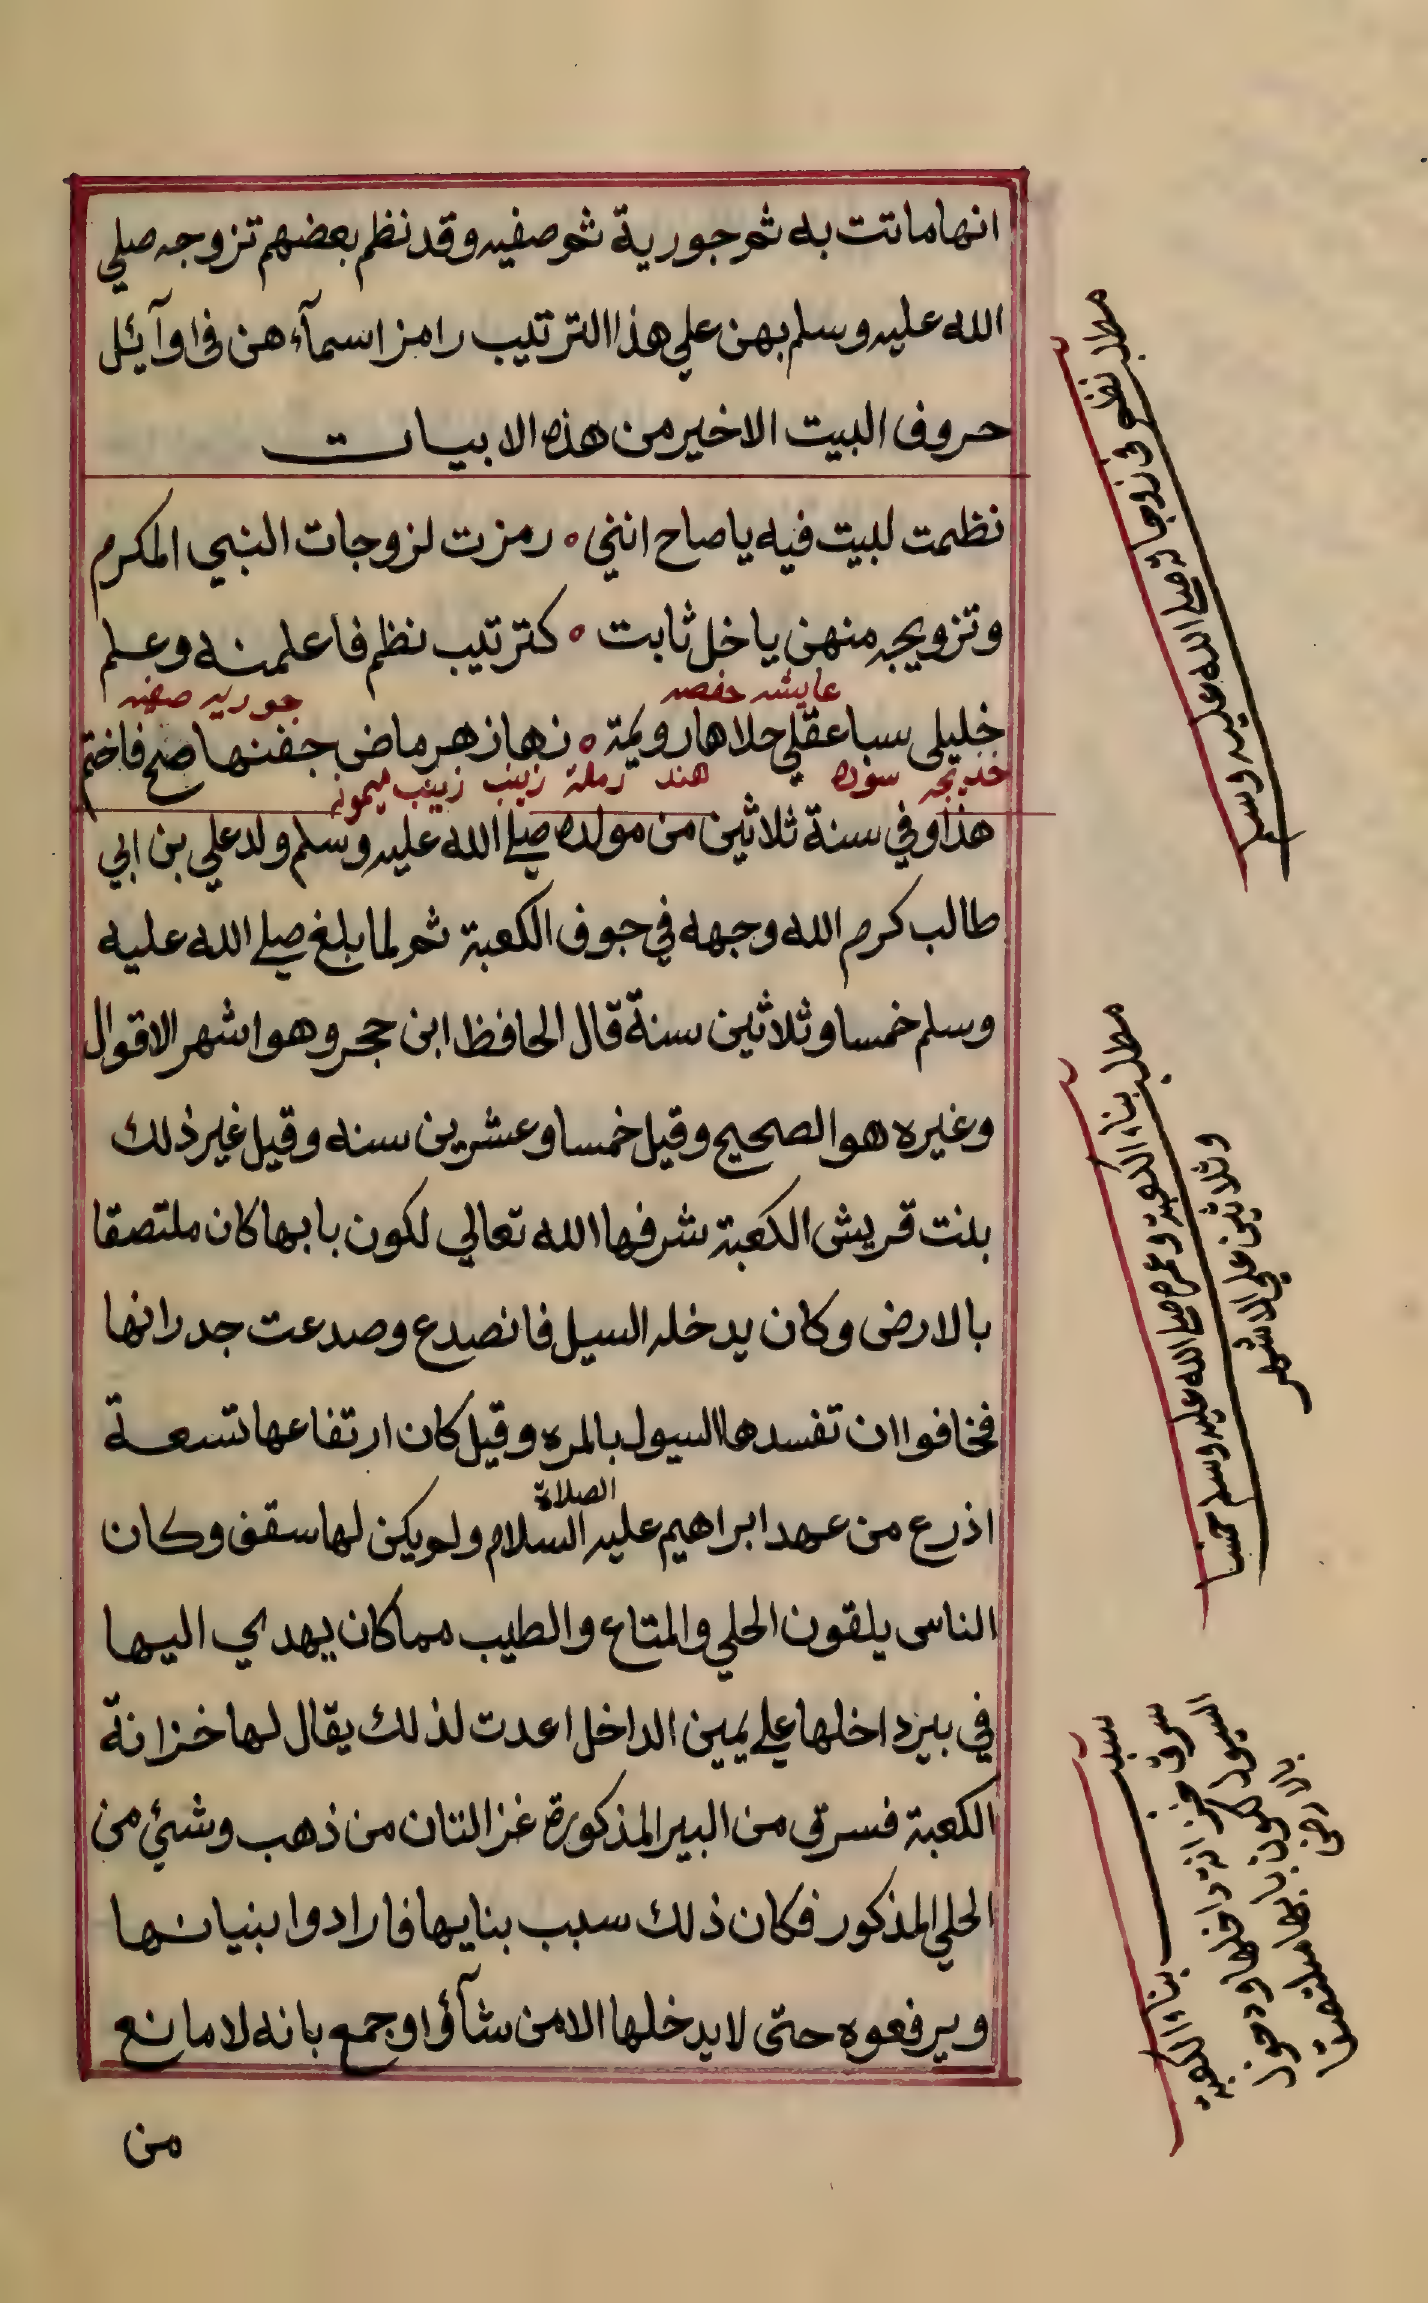 انها ماتت به ثم جورية ثم صفيه وقد نظم بعضهم تزوجه صلي
الله عليه وسلم بهن علي هذا الترتيب رامزا سمآء هن في اوآئل
حروف البيت الاخير من هذه الابيات
نظمت لبيت فيه ياصاح انني ه رمزت لزوجات النبي المكرم
وتزويجه منهن ياخل ثابت ه كترتيب نظم فاعلمنه وعلم
عايشه حفصه جوريه صفيه
خليلي سبا عقلي حلاها رويمة ه زها زهر ماض جفنها صح فاختم
خديجه سوده هند رملة زينب زينب ميمونه
هذا وفي سنة ثلاثين من مولده صلي الله عليه وسلم ولد علي بن ابي
طالب كرم الله وجهه في جوف الكعبة ثم لما بلغ صلي الله عليه
وسلم خمسا وثلاثين سنة قال الحافظ ابن حجر وهو اشهر الاقوال
وغيره هو الصحيح وقيل خمسا وعشرين سنه وقيل غير ذلك
بنت قريش الكعبة شرفها الله تعالي لكون بابها كان ملتصقا
بالارض وكان يدخله السيل فانصدع وصدعت جدرانها
فخافوا ان تفسدها السيول بالمره وقيل كان ارتفاعها تسعة
الصلاة
اذرع من عهد ابراهيم عليه السلام ولم يكن لها سقف وكان
الناس يلقون الحلي والمتاع والطيب مما كان يهدي اليها
في بير داخلها علي يمين الداخل اعدت لذلك يقال لها خزانة
الكعبة فسرق من البير المذكورة غزالتان من ذهب وشئ من
الحلي المذكور فكان ذلك سبب بنايها فارادوا بنيانها
ويرفعوه حتي لا يدخلها الا من شآؤا وجمع بانه لا مانع
من
مطلب نظم في زوجاته صلي الله عليه وسلم
مطلب بناء الكعبة وعمره صلي الله عليه وسلم خمسا
وثلاثين علي الاشهر
سبب بناء الكعبة
سرق خزانة داخلها ودخول
السيول لكون بابها ملتصقا
بالارض